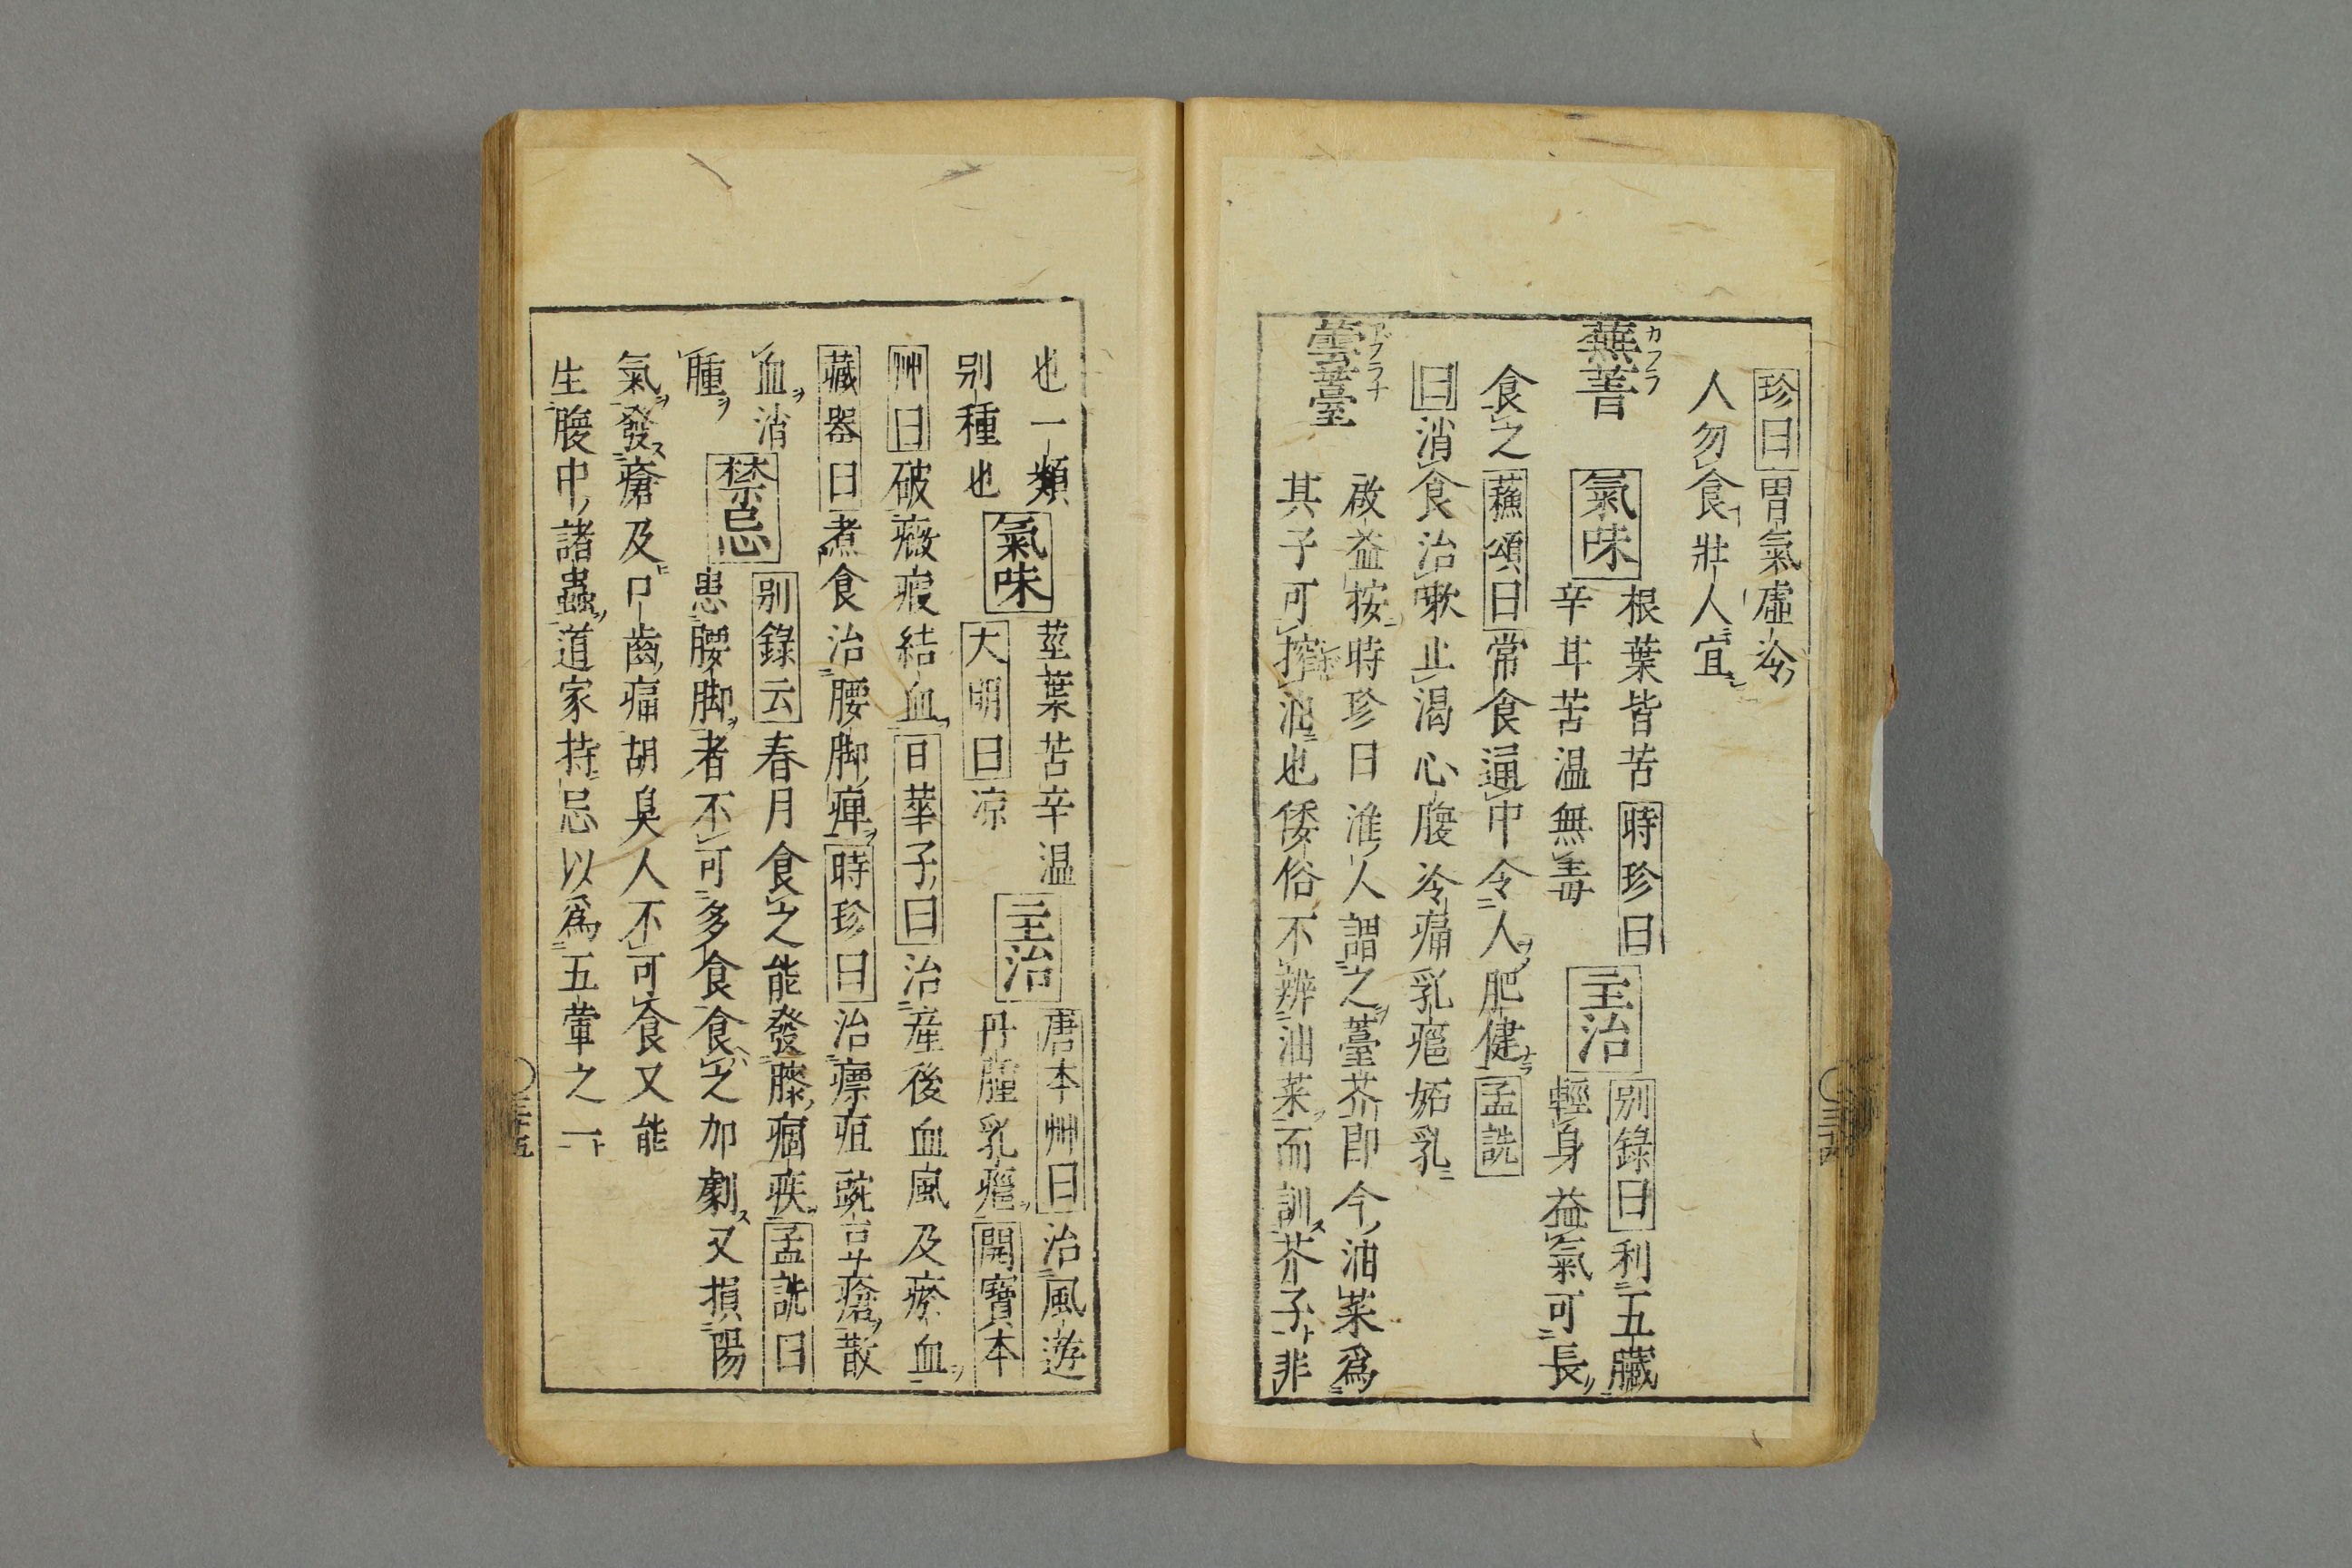 珍曰胃氣虛冷
人勿食壯人宜
蕪菁 カフラ
氣味
根葉皆苦時珍曰
辛甘苦温無毒
主治
别錄曰利五臟
輕身益氣可長
食之蘓頌曰常食通中令人肥健孟詵
曰消食治嗽止渴心腹冷痛乳癰妬乳
蕓薹 アブラナ
啟益按時珍曰淮人謂之薹芥即今油菜爲
其子可搾油也倭俗不辨油菜而訓芥子非
三十四
也一類
别種也
氣味
莖葉苦辛温
大明曰凉
主治
唐本艸曰治風遊
丹腫乳癰開寶本
艸曰破癥瘕結血日華子曰治産後血風及瘀血
藏器曰煮食治腰脚痺時珍曰治瘭疽豌豆瘡散
血消
腫
禁忌
别錄云春月食之能發膝痼疾孟詵曰
患腰脚者不可多食食之加劇又損陽
氣發瘡及口齒痛胡臭人不可食又能
生腹中諸蟲道家持忌以爲五葷之一
三十五